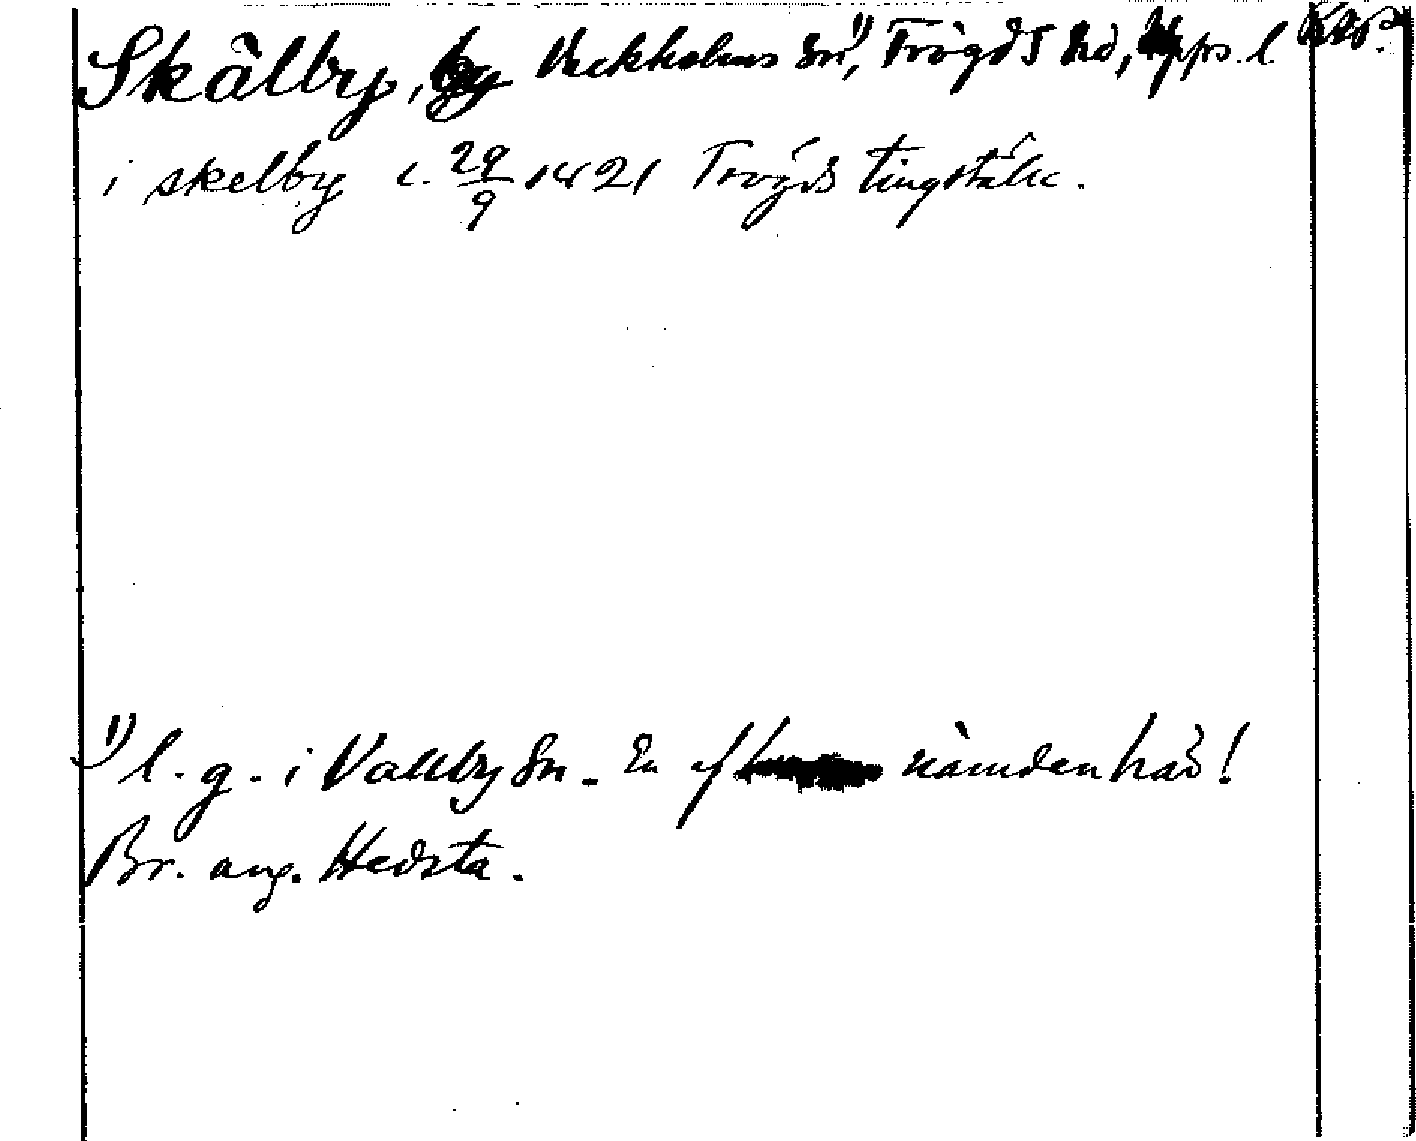 Skälby, by Veckholms sn¹⁾, Trögds hd, Upps. l. RAp.
i skelby c. 29/9 1421 Trögds tingställe.
1) l. g. i Vallby sn. En af nämnden här!
Br. ang. Hedsta.